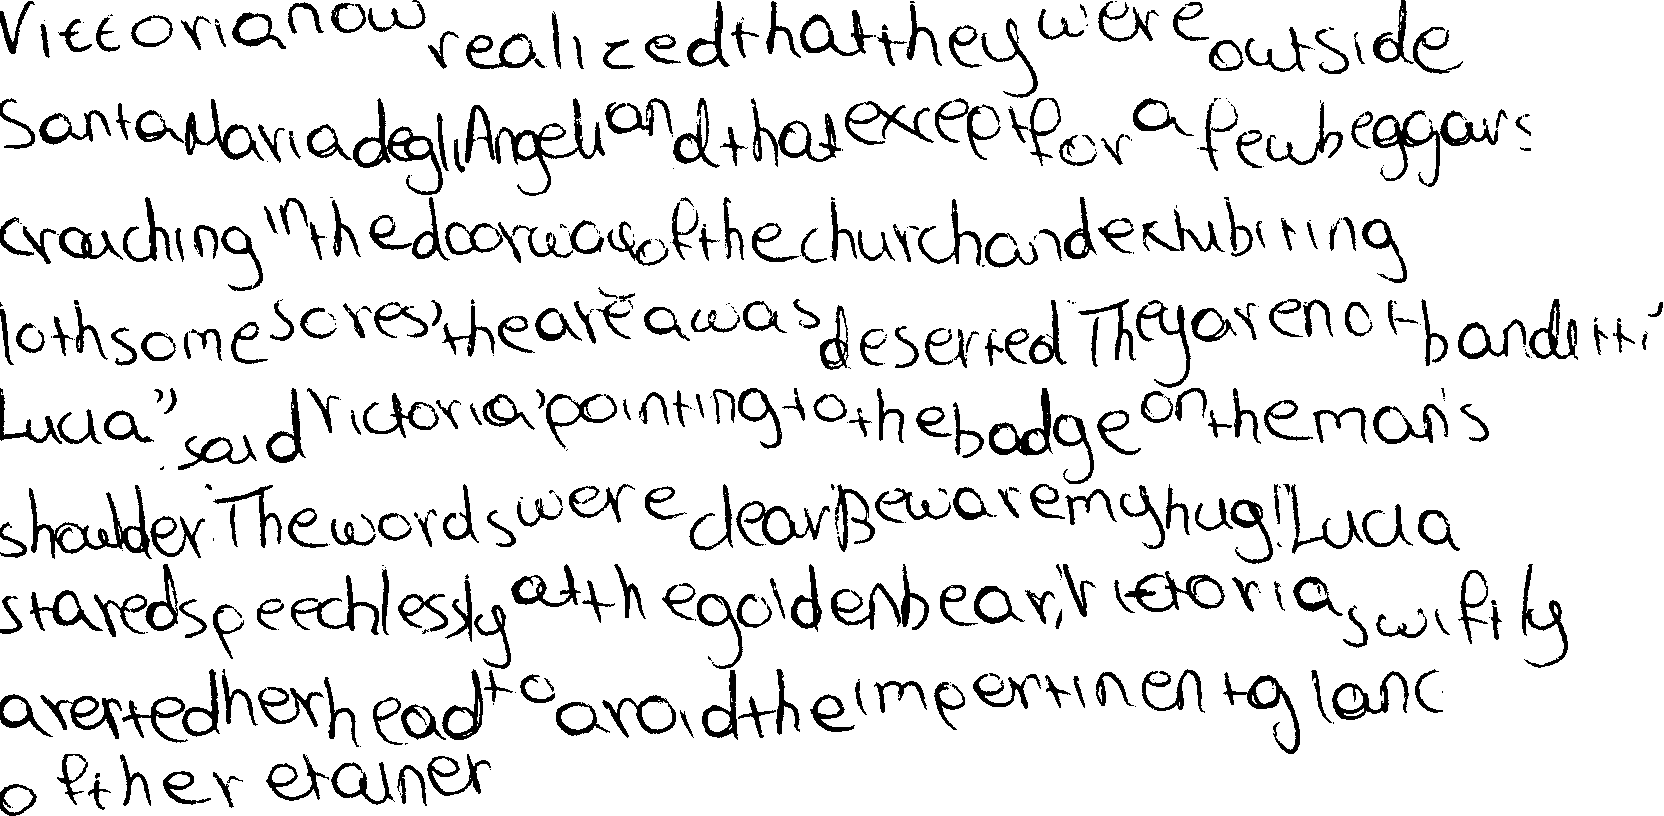 Vittoria now realized that they were outside
Santa Maria degli Angeli and that except for a few beggars
crouching in the doorway of the church and exhibiting
lothsome sores, the area was deserted They are not banditti
Lucia." said Victoria, pointing to the badge on the man's
shoulder. The words were clear Beware my hug!" Lucia
stared speechlessly at the golden bear, Victoria swiftly
averted her head to avoid the impertinent glanc
of the retainer